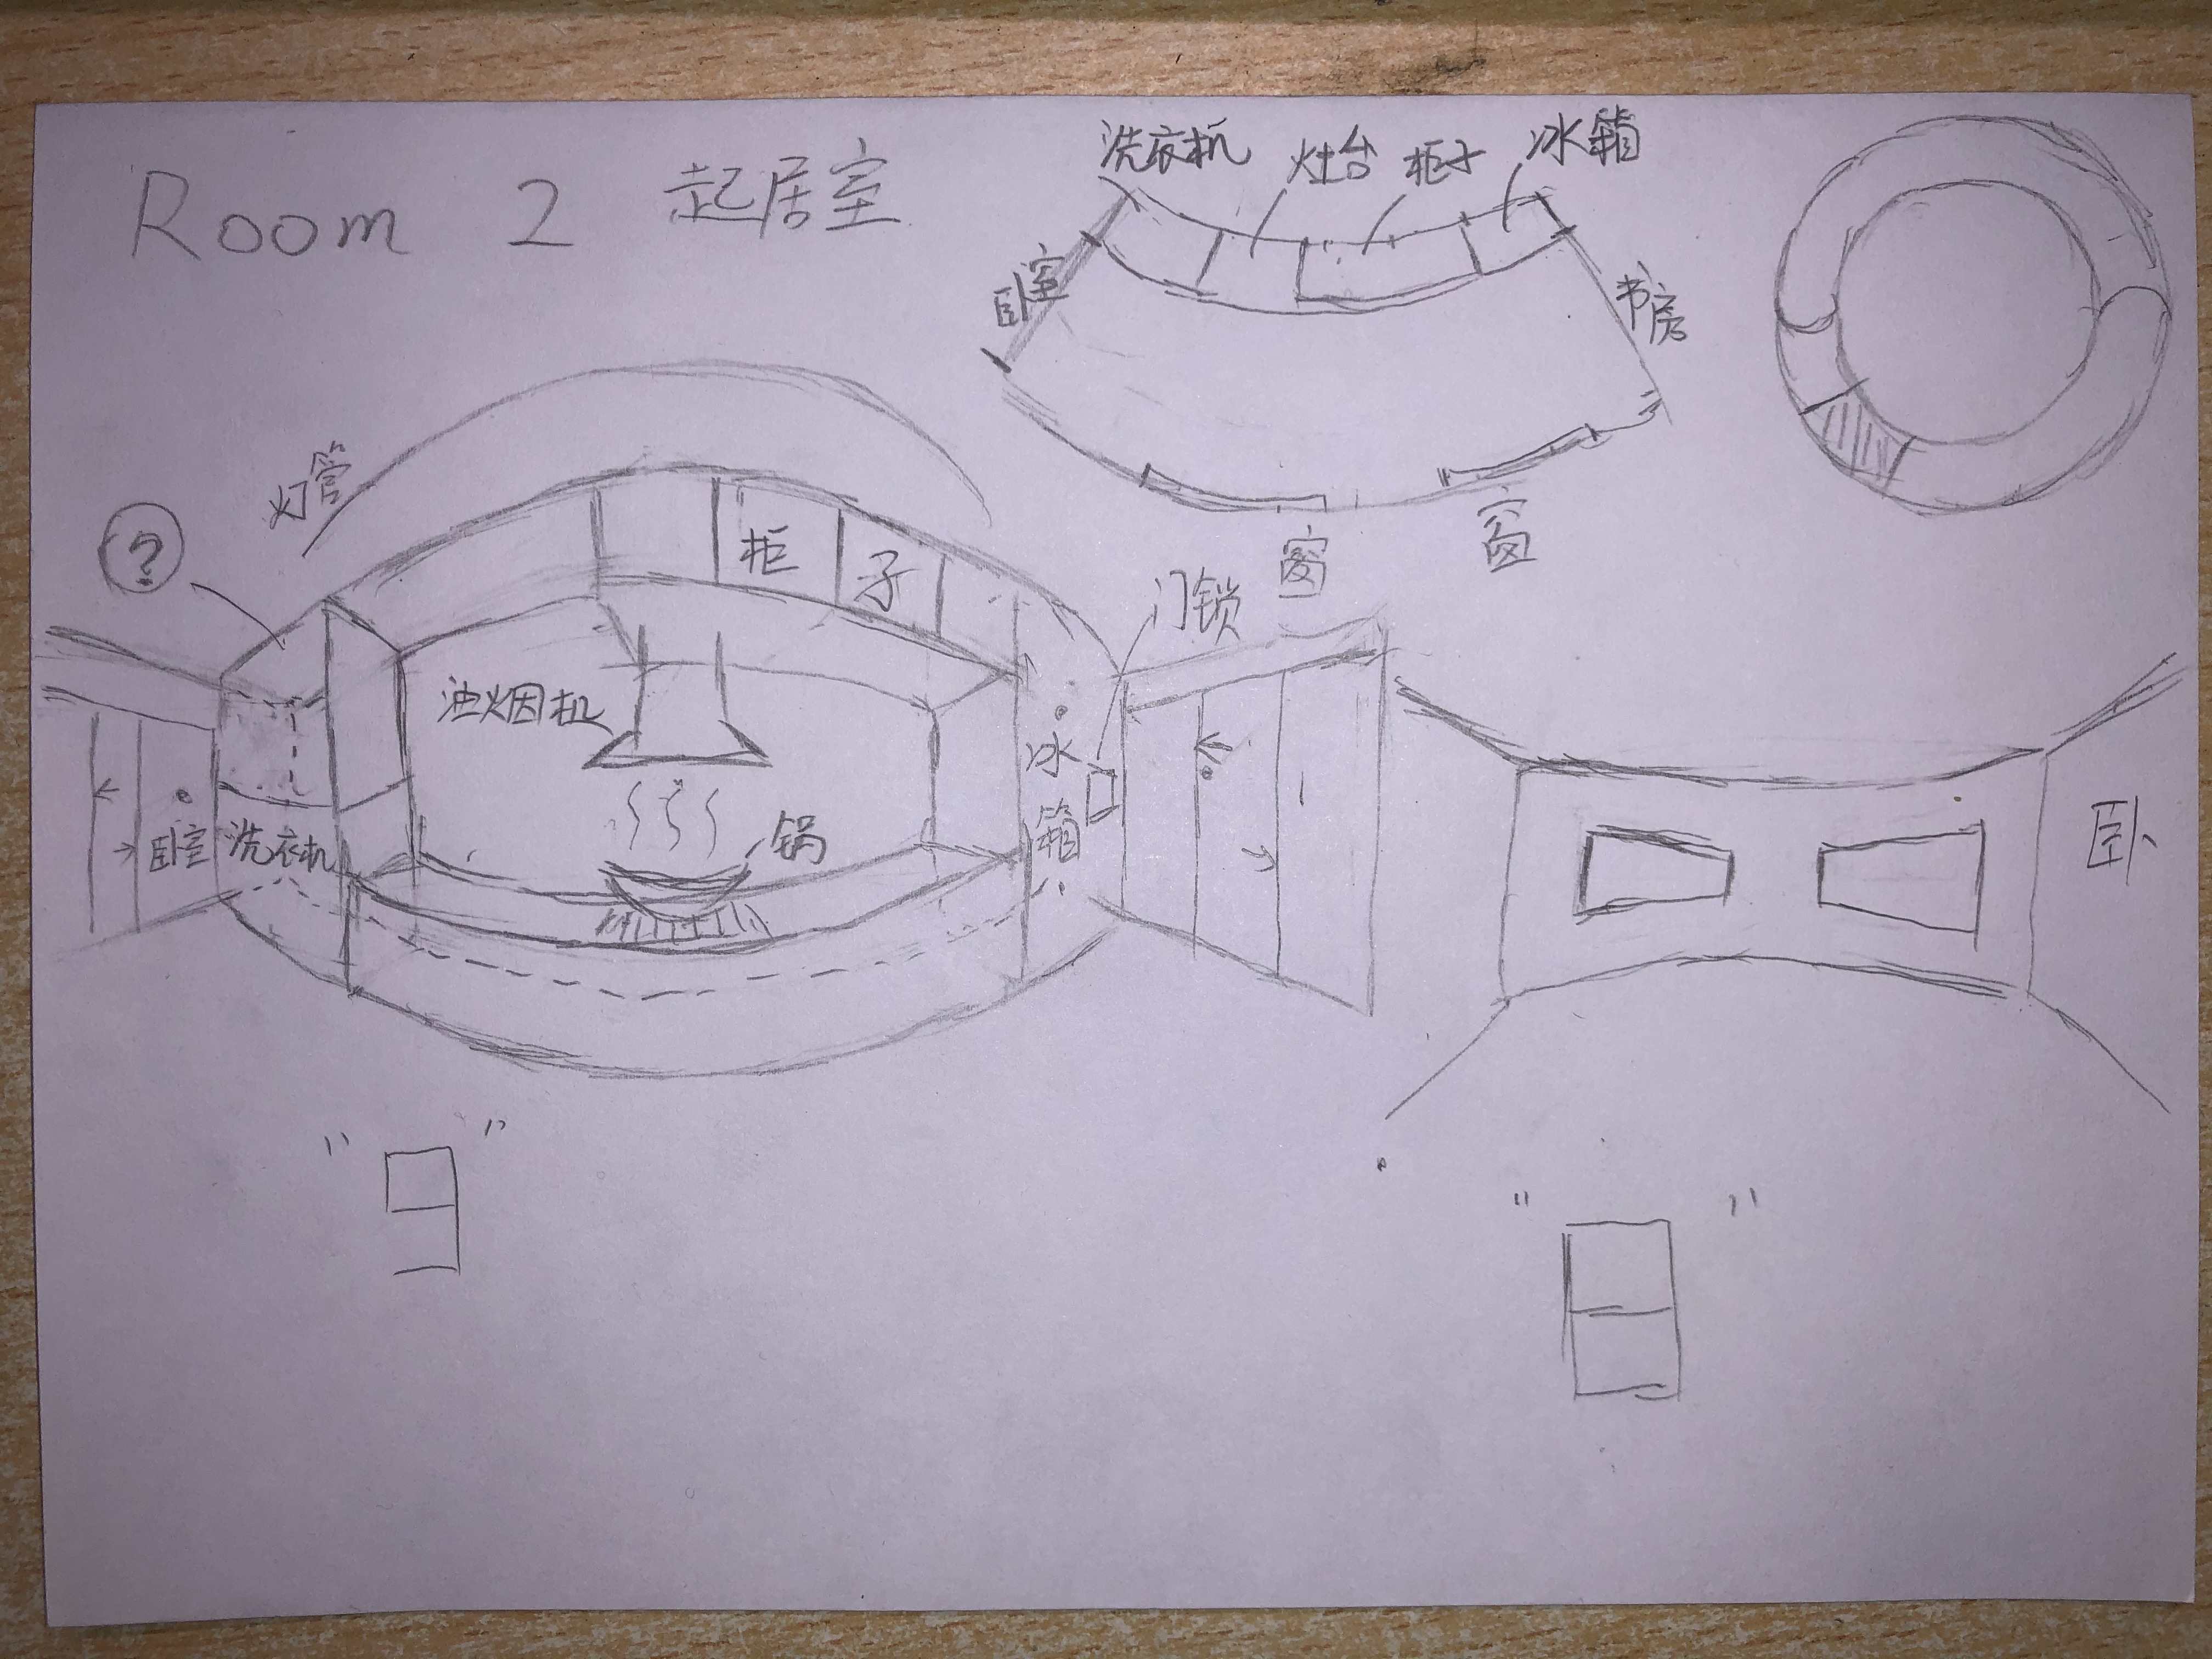 Room 2 起居室
洗衣机
灶台
柜子
冰箱
卧室
书房
窗
窗
灯管
?
柜
子
门锁
油烟机
冰
箱
锅
卧室
洗衣机
卧
"日"